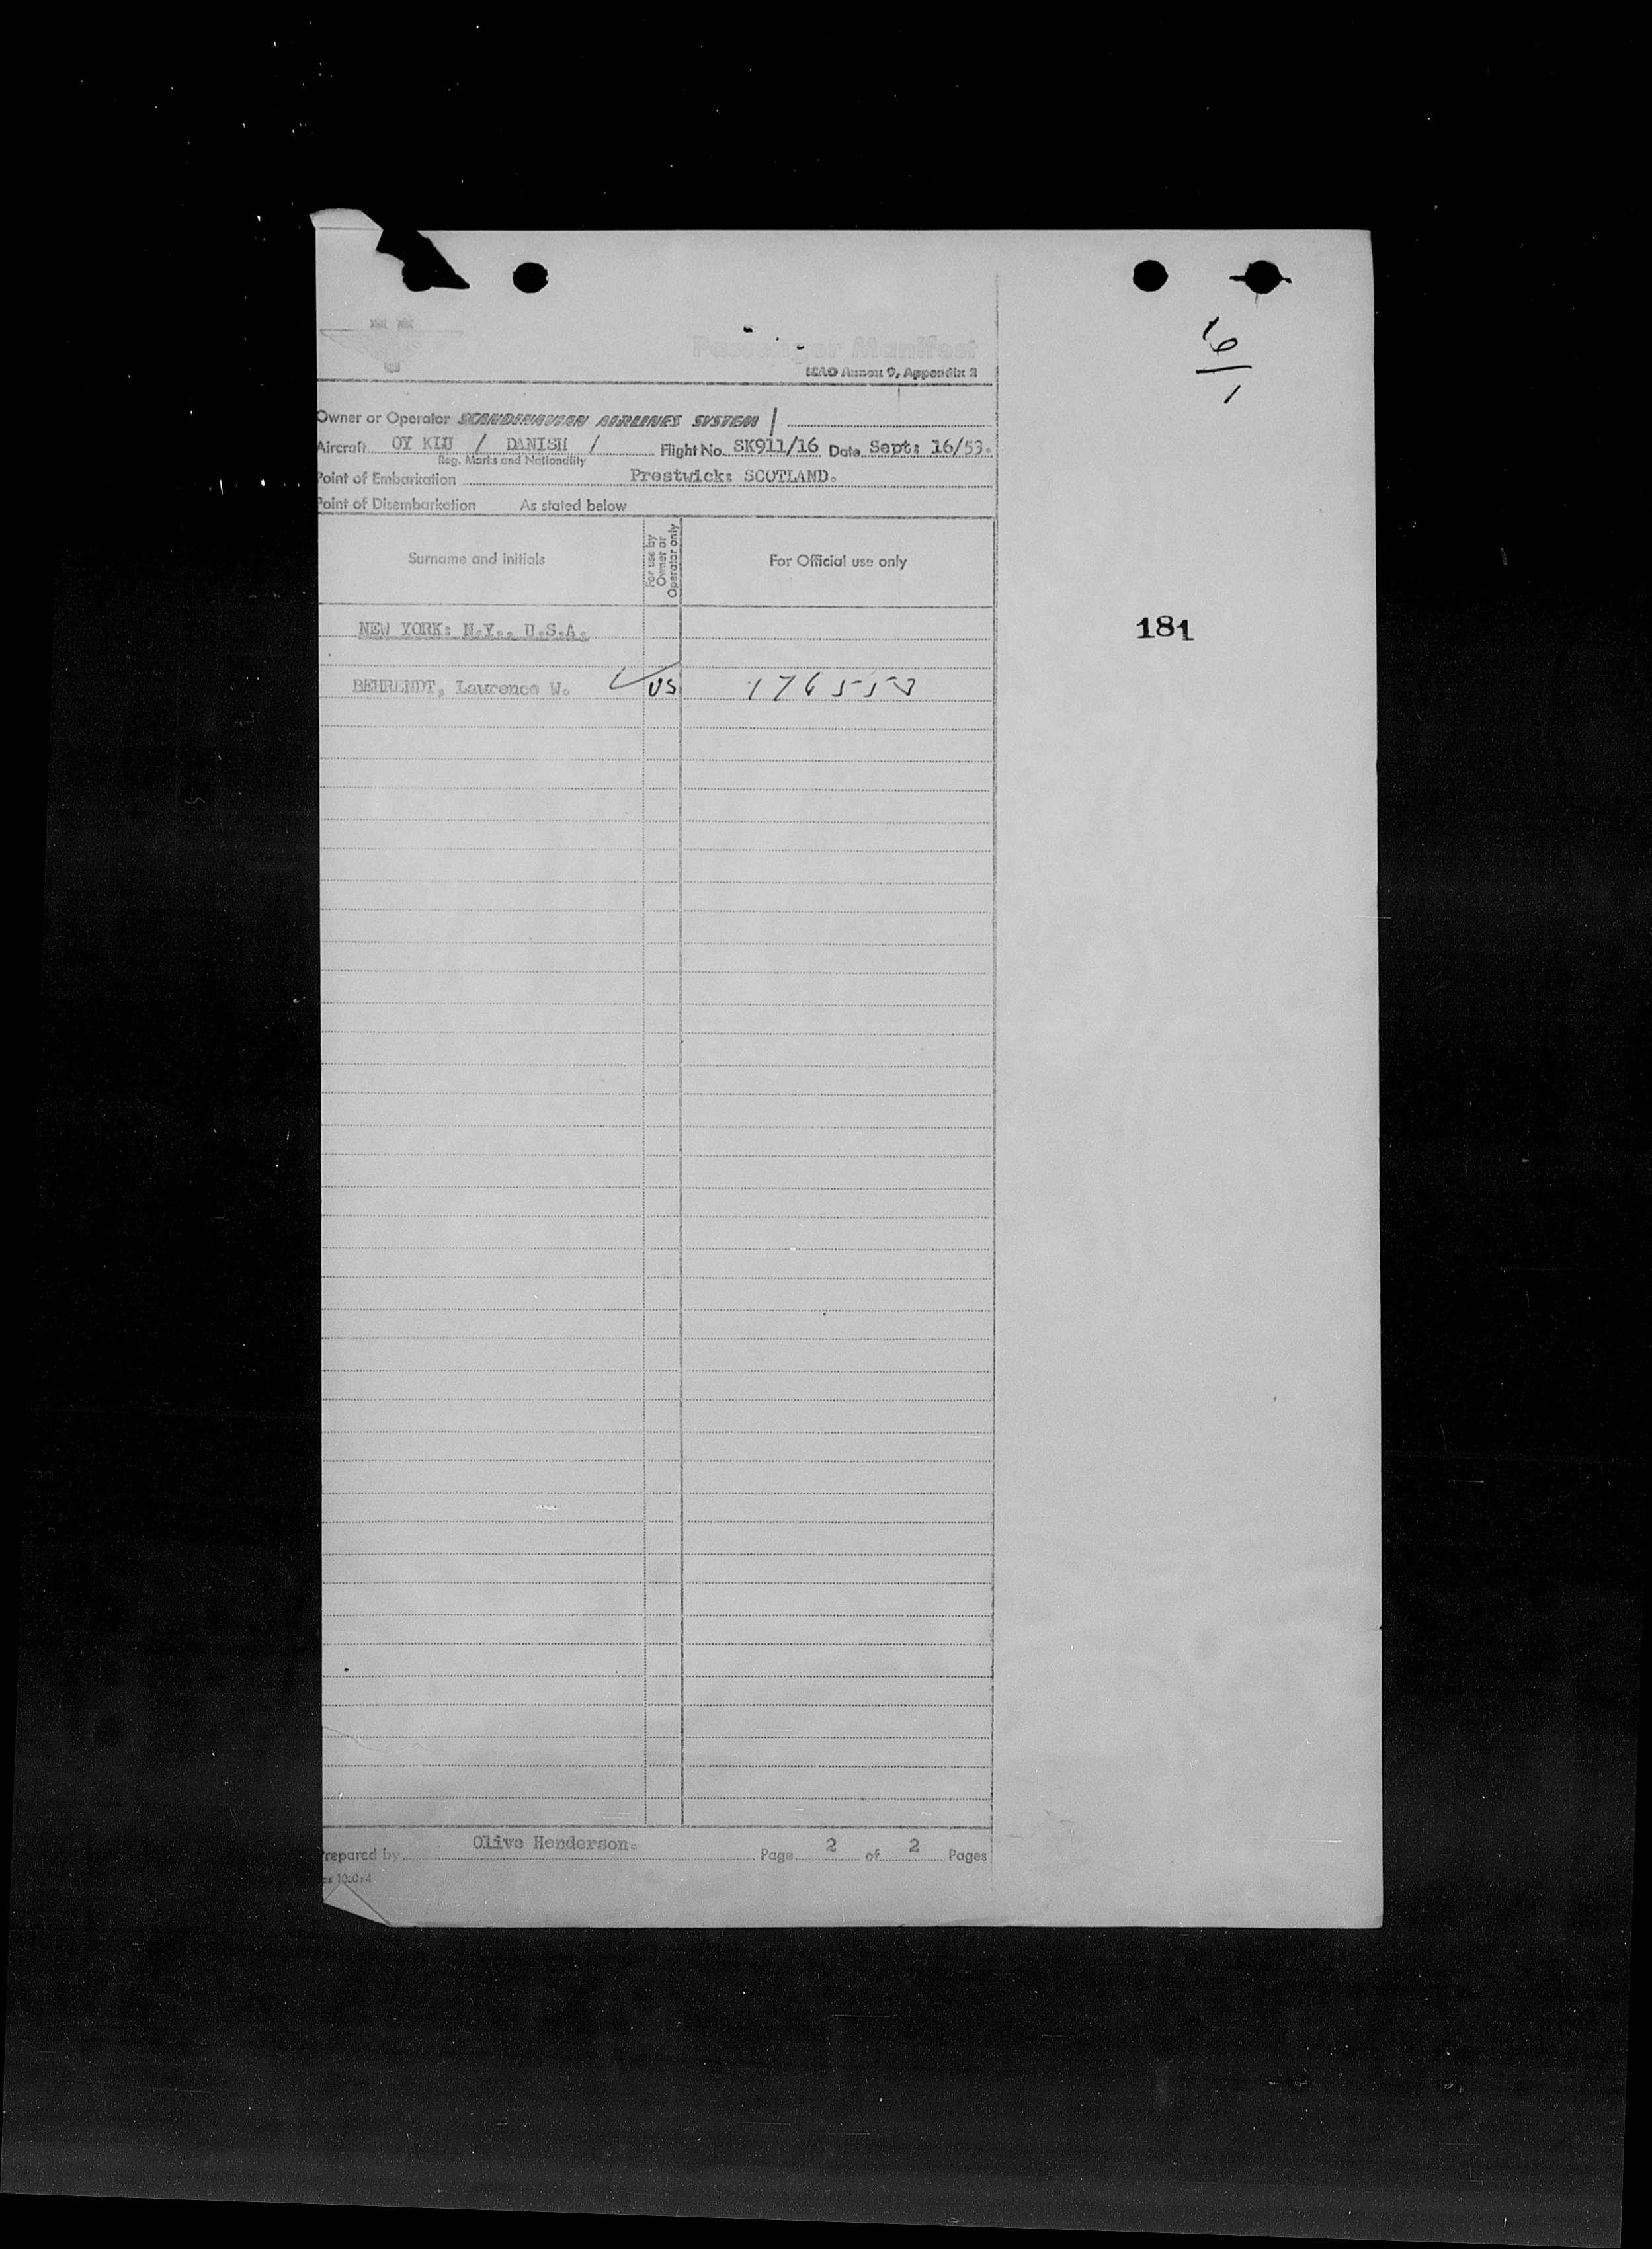 Passenger Manifest
ICAO Annex 9, Appendix 2
Owner or Operator SCANDINAVIAN AIRLINES SYSTEM
Aircraft OY KLU / DANISH / Flight No. SK911/16 Date Sept: 16/53.
Reg. Marks and Nationality
Point of Embarkation Prestwick: SCOTLAND.
Point of Disembarkation As stated below
Surname and Initials For use by Owner or Operator only For Official use only
NEW YORK: N.Y.. U.S.A.
181
BEHRENDT, Lawrence W. US
Prepared by Olive Henderson. Page 2 of 2 Pages